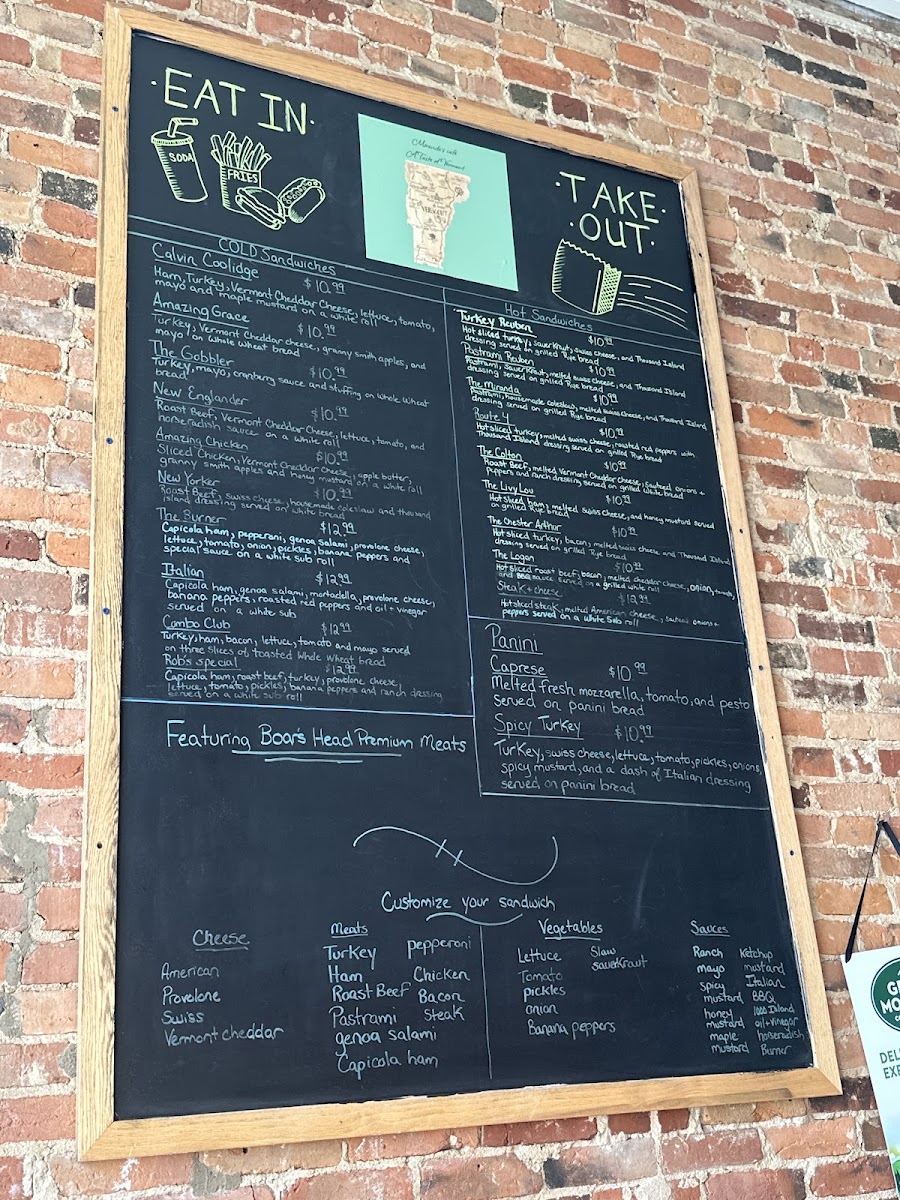 EAT IN
SODA
FRIES
Miranda's café
A Taste of Vermont
VERMONT
TAKE
OUT
COLD Sandwiches
Calvin Coolidge $10.99
Ham, Turkey, Vermont Cheddar Cheese, lettuce, tomato,
mayo and maple mustard on a white roll
Amazing Grace $10.99
Turkey, Vermont Cheddar cheese, granny smith apples, and
mayo on whole wheat bread
The Gobbler $10.99
Turkey, mayo, cranberry sauce and stuffing on Whole Wheat
bread
New Englander $10.99
Roast Beef, Vermont Cheddar Cheese, lettuce, tomato, and
horseradish sauce on a white roll
Amazing Chicken $10.99
Sliced Chicken, Vermont Cheddar Cheese, apple butter,
granny smith apples and honey mustard on a white roll
New Yorker $10.99
Roast Beef, swiss cheese, housemade coleslaw and thousand
island dressing served on white bread
The Burner $12.99
Capicola ham, pepperoni, genoa salami, provolone cheese,
lettuce, tomato, onion, pickles, banana peppers and
special sauce on a white sub roll
Italian $12.99
Capicola ham, genoa salami, mortadella, provolone cheese,
banana peppers, roasted red peppers and oil + vinegar
served on a white sub
Combo Club $12.99
Turkey, ham, bacon, lettuce, tomato and mayo served
on three slices of toasted Whole Wheat bread
Rob's special $12.99
Capicola ham, roast beef, turkey, provolone cheese,
lettuce, tomato, pickles, banana peppers and ranch dressing
served on a white sub roll
Featuring Boar's Head Premium Meats
Hot Sandwiches
Turkey Reuben $10.99
Hot sliced turkey, sauerkraut, swiss cheese, and Thousand Island
dressing served on grilled Rye bread
Pastrami Reuben $10.99
Pastrami, Sauerkraut, melted swiss cheese, and Thousand Island
dressing served on grilled Rye bread
The Miranda $10.99
Pastrami, housemade coleslaw, melted swiss cheese, and Thousand Island
dressing served on grilled Rye bread
Route 4 $10.99
Hot sliced turkey, melted swiss cheese, roasted red peppers with
Thousand Island dressing served on grilled Rye bread
The Colton $10.99
Roast Beef, melted Vermont Cheddar Cheese, Sauteed onions +
peppers and ranch dressing served on grilled White bread
The Livy Lou $10.99
Hot sliced ham, melted Swiss cheese, and honey mustard served
on grilled Rye bread
The Chester Arthur $10.99
Hot sliced turkey, bacon, melted swiss cheese and Thousand Island
dressing served on grilled Rye bread
The Logan $10.99
Hot sliced roast beef, bacon, melted cheddar cheese, onion, tomato,
and BBQ sauce served on a grilled white roll
Steak + cheese $12.99
Hot sliced steak, melted American cheese, sauteed onions +
peppers served on a white Sub roll
Panini
Caprese $10.99
Melted fresh mozzarella, tomato, and pesto
served on panini bread
Spicy Turkey $10.99
Turkey, swiss cheese, lettuce, tomato, pickles, onions,
spicy mustard, and a dash of Italian dressing
served on panini bread
Customize your sandwich
Cheese
American
Provolone
Swiss
Vermont cheddar
Meats
Turkey pepperoni
Ham Chicken
Roast Beef Bacon
Pastrami steak
genoa salami
Capicola ham
Vegetables
Lettuce Slaw
Tomato sauerkraut
pickles
onion
Banana peppers
Sauces
Ranch Ketchup
mayo mustard
spicy Italian
mustard BBQ
honey 1000 Island
mustard oil + vinegar
maple horseradish
mustard Burner